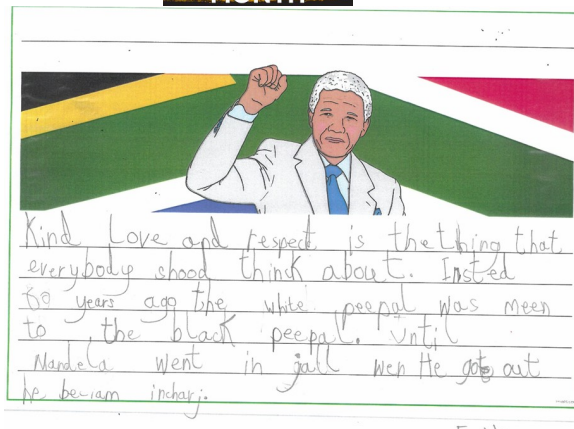 Kind Love and respect is the thing that
everybody shood thinck about. Insted
60 years ago the white peepal was meen
to the black peepal. Until
Mandela went in jall wen He got out
he beciam incharj.